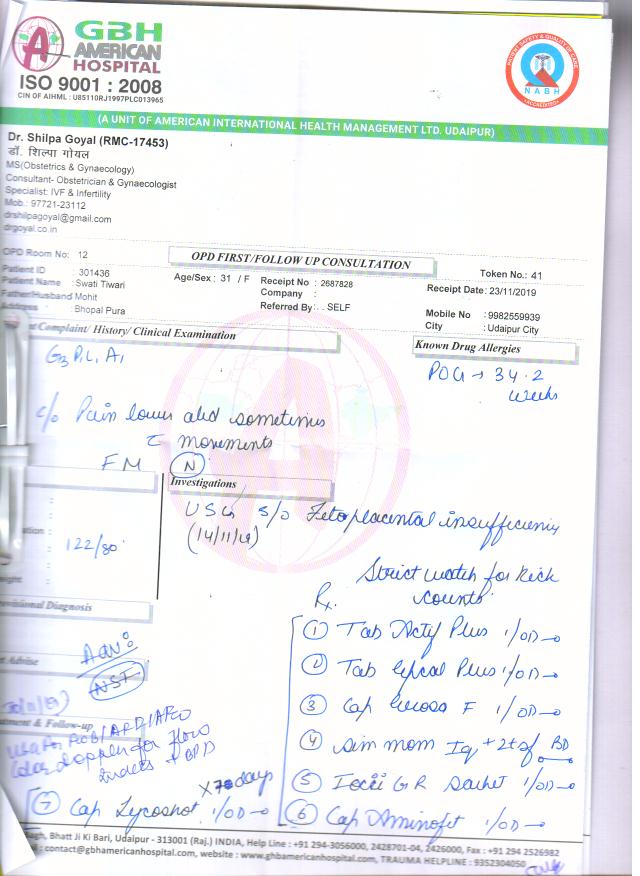 GBH
AMERICAN
HOSPITAL
ISO 9001 : 2008
CIN OF AIHML : U85110RJ1997PLC013965
PATIENT SAFETY & QUALITY OF CARE
NABH
ACCREDITED
(A UNIT OF AMERICAN INTERNATIONAL HEALTH MANAGEMENT LTD. UDAIPUR)
Dr. Shilpa Goyal (RMC-17453)
डॉ. शिल्पा गोयल
MS(Obstetrics & Gynaecology)
Consultant- Obstetrician & Gynaecologist
Specialist: IVF & Infertility
Mob.: 97721-23112
drshilpagoyal@gmail.com
drgoyal.co.in
OPD Room No: 12
OPD FIRST/FOLLOW UP CONSULTATION
Token No.: 41
Patient ID : 301436
Age/Sex : 31 / F
Receipt No : 2687828
Receipt Date: 23/11/2019
Patient Name : Swati Tiwari
Company :
Father/Husband Mohit
Referred By: . . SELF
Mobile No : 9982559939
Address : Bhopal Pura
City : Udaipur City
Complaint/ History/ Clinical Examination
Known Drug Allergies
G3 P1 L1 A1
POG → 34.2
weeks
c/o Pain lower abd sometimes
c movements
FM N
Investigations
USG s/o Fetoplacental insufficiency
(14/11/19)
122/80
Strict watch for kick
counts
Rx.
Provisional Diagnosis
① Tab Actif Plus 1/OD
Adv:
② Tab Plus 1/OD
Advise
NST
③ Cap F 1/OD
Treatment & Follow-up
④ Sim mom 2tsf BD
USG for
Color doppler for flow
⑤ GR Sachet 1/OD
Indices + BPD
X 7 days
⑦ Cap Lycoshot 1/OD
⑥ Cap Aminofit 1/OD
Bhatt Ji Ki Bari, Udaipur - 313001 (Raj.) INDIA, Help Line : +91 294-3056000, 2428701-04, 2426000, Fax : +91 294 2526982
contact@gbhamericanhospital.com, website : www.gbhamericanhospital.com, TRAUMA HELPLINE : 9352304050